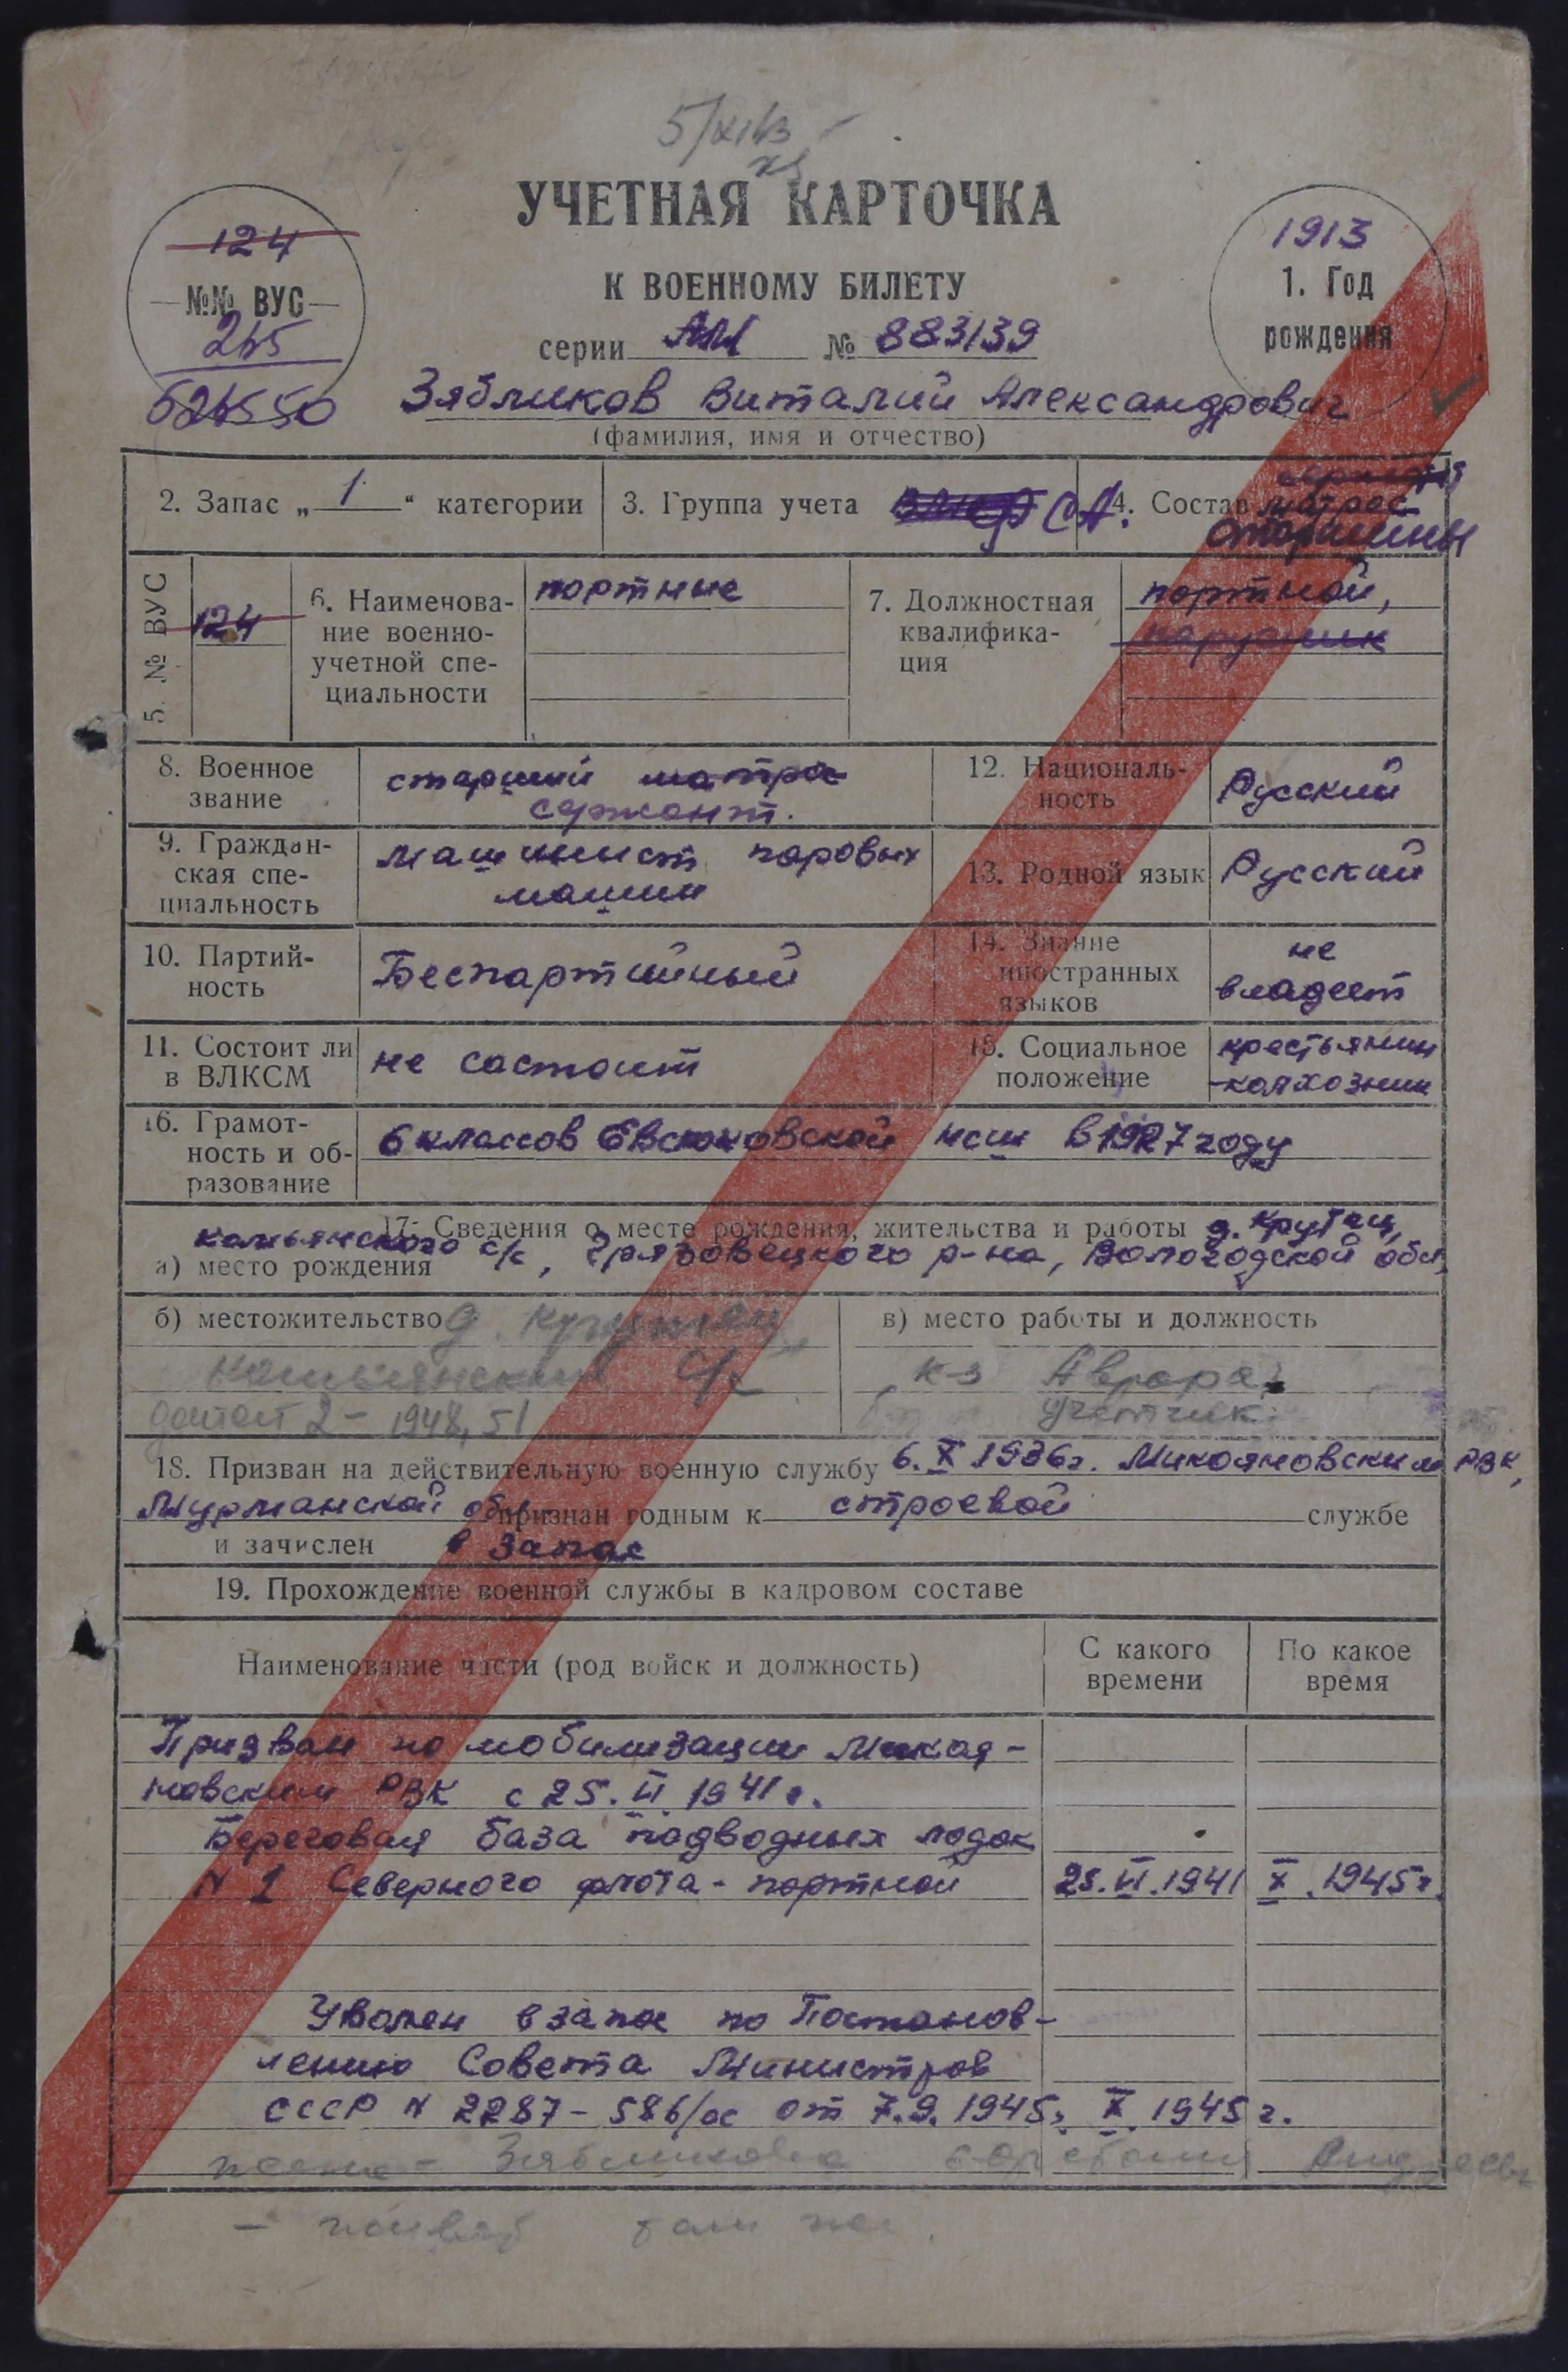 5/XI
УЧЕТНАЯ КАРТОЧКА
К ВОЕННОМУ БИЛЕТУ
124
№№ ВУС
265
626550
1913
1. Год
рождения
серии АМ № 883139
Зябликов Виталий Александрович
(фамилия, имя и отчество)
2. Запас „ 1 “ категории
3. Группа учета СА.
4. Состав матрос
старшины
5. № ВУС
124
6. Наименова-
ние военно-
учетной спе-
циальности
портные
7. Должностная
квалифика-
ция
портной,
парусник
8. Военное
звание
старший матрос
сержант.
12. Националь-
ность
Русский
9. Граждан-
ская спе-
циальность
машинист паровых
машин
13. Родной язык
Русский
10. Партий-
ность
Беспартийный
14. Знание
иностранных
языков
не
владеет
11. Состоит ли
в ВЛКСМ
не состоит
15. Социальное
положение
крестьянин
-колхозник
16. Грамот-
ность и об-
разование
6 классов Евсюковской нсш в 1927 году
17. Сведения о месте рождения, жительства и работы д. Крутец,
а) место рождения
с/с, Грязовецкого р-на, Вологодской обл,
б) местожительство д. Крутец
с/с
2 - 1948, 51
в) место работы и должность
к-з Аврора,
учетчик
18. Призван на действительную военную службу 6. X 1936г. Микояновским РВК,
Мурманской обл признан годным к строевой службе
и зачислен в запас
19. Прохождение военной службы в кадровом составе
Наименование части (род войск и должность)
С какого
времени
По какое
время
Призван по мобилизации Микоя-
новским РВК с 25. VI 1941 г.
Береговая база подводных лодок
N 1 Северного флота - портной 25. VI. 1941 X. 1945г.
Уволен в запас по Постанов-
лению Совета Министров
СССР N 2287 - 586/сс от 7.9. 1945г. X 1945 г.
жена - Зябликова
там же.